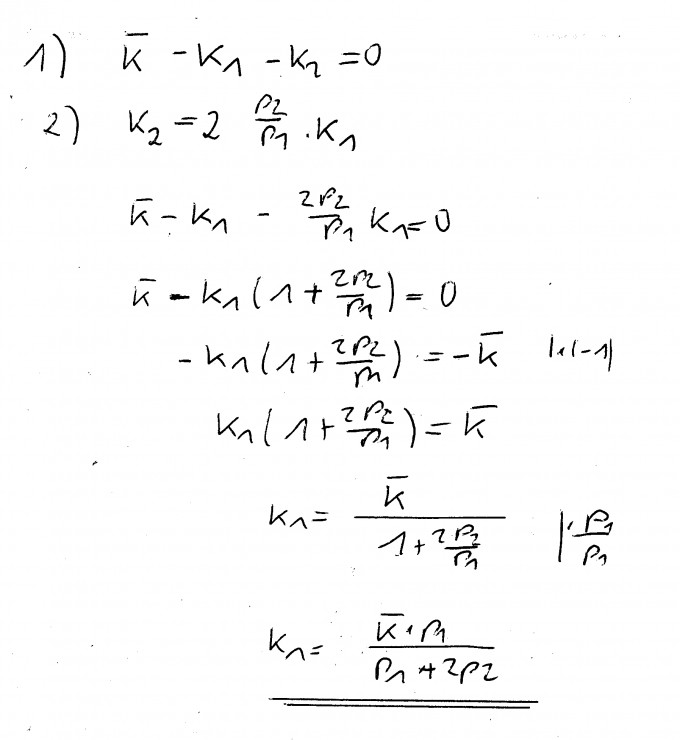 1) k̄ - k₁ - k₂ = 0
2) k₂ = 2 p₂/p₁ · k₁
k̄ - k₁ - 2p₂/p₁ k₁ = 0
k̄ - k₁ (1 + 2p₂/p₁) = 0
- k₁ (1 + 2p₂/p₁) = - k̄ |·(-1)
k₁ (1 + 2p₂/p₁) = k̄
k₁ = k̄ / (1 + 2p₂/p₁) |· p₁/p₁
k₁ = k̄ · p₁ / (p₁ + 2p2)